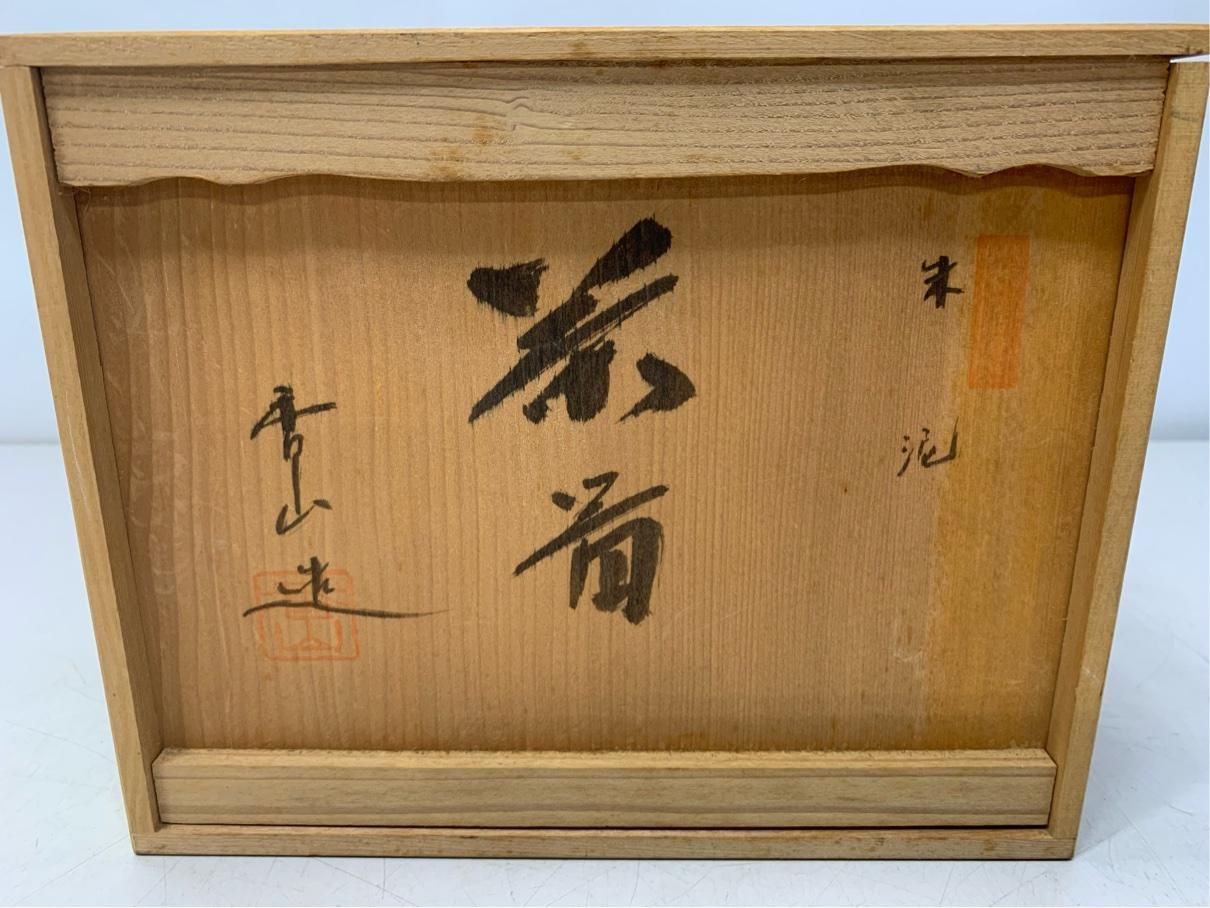 朱泥
茶首
香山造